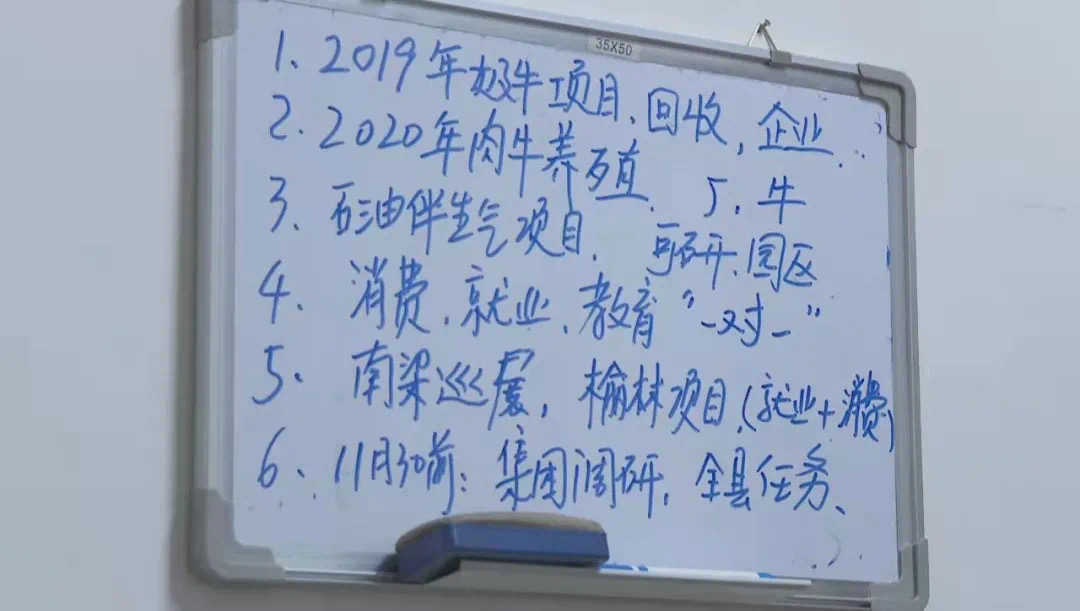 35X50
1、2019年奶牛项目、回收，企业、
2、2020年肉牛养殖、 厂，牛
3、石油伴生气项目、 可研、园区
4、消费、就业、教育“一对一”
5、南梁巡展，榆林项目、(就业+消费)
6、11月30前：集团调研，全县任务、